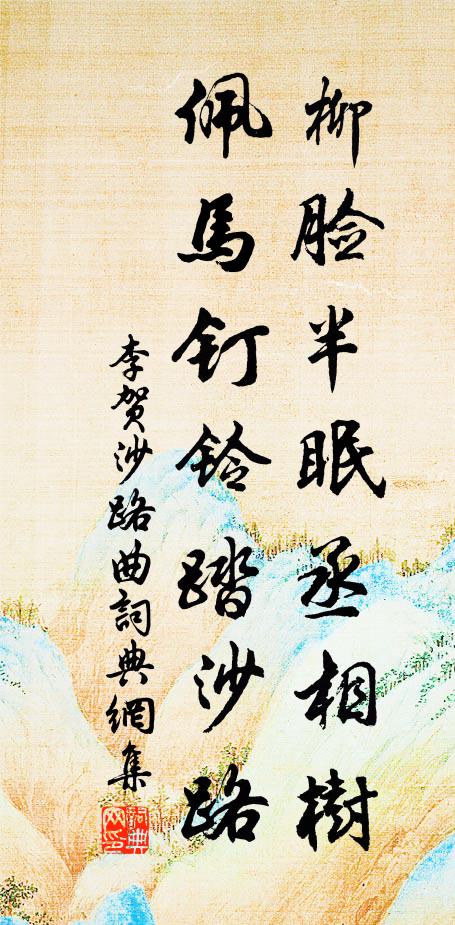 柳脸半眠丞相树
佩馬钉铃踏沙路
李贺沙路曲詞典網集
詞典